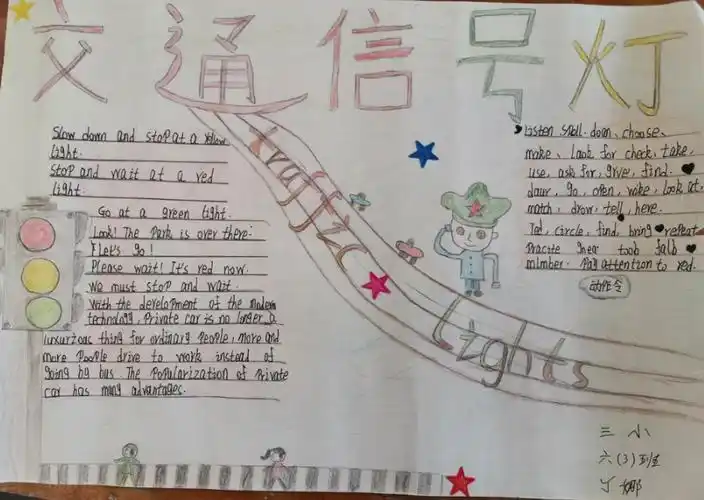 交通信号灯
Slow down and stop at a yellow
light.
Stop and wait at a red
light.
Go at a green light.
Look! The Park is over there:
Let's go!
Please wait! It's red now.
We must stop and wait.
With the development of the modern
technology, Private car is no longer a
luxurious thing for ordinary People, more and
more People drive to work instead of
going by bus. The Popularization of Private
car has many advantages.
traffic
Lights
Listen, down, choose,
make, Look for check, take,
use, ask for, give, find.
go, open, look at,
match, draw, tell, here.
circle, find, bring repeat
Pay attention to red.
动作令
三小
六(3)班
丁娜